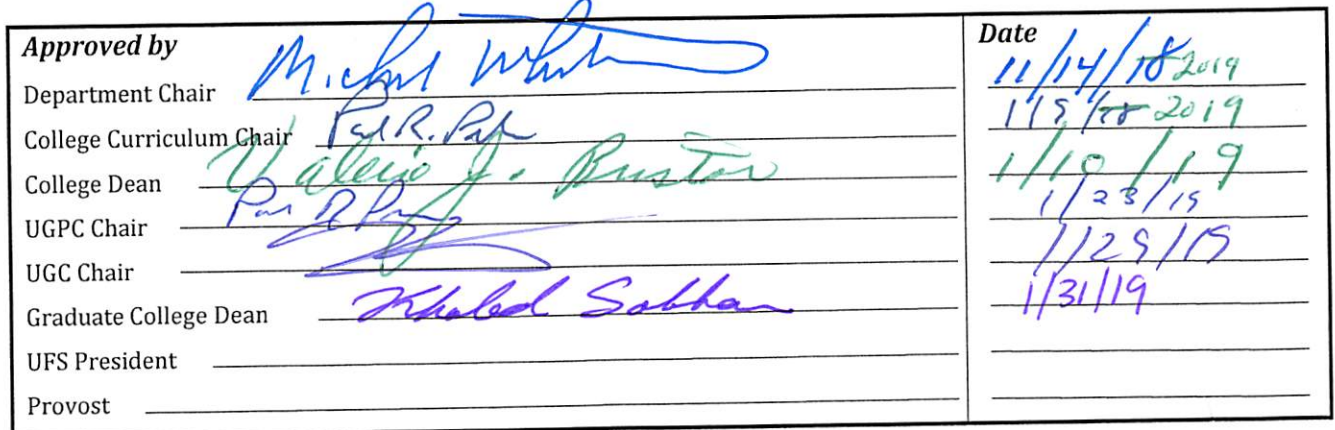 Approved by Date
Department Chair 11/14/18 2019
College Curriculum Chair 1/9/18 2019
College Dean Valerio J. Bristor 1/10/19
UGPC Chair 1/23/19
UGC Chair 1/29/19
Graduate College Dean Khaled Sobhan 1/31/19
UFS President
Provost